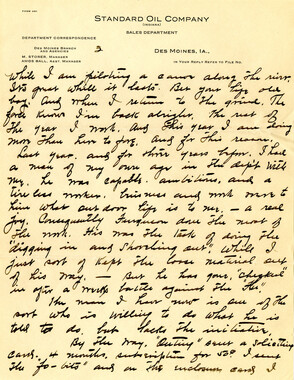 STANDARD OIL COMPANY
(INDIANA)
SALES DEPARTMENT
DEPARTMENT CORRESPONDENCE
DES MOINES BRANCH
DES MOINES, IA.,
3
M. STORER, MANAGER
IN YOUR REPLY REFER TO FILE NO.
while I am piloting a canoe along the river.
Its great while it lasts. But your life old
boy. And when I return to the grind, The
Gods know I'm back alright, the rest of
the year I work. And this year I am doing
more than
and for this reason.
Last year, and for three years before, I had
a man of my own age in the dept with
me, he was capable, ambitious, and a
tireless worker. Business and work were to
him what outdoor life is to me, – a real
joy. Consequently Ferguson does the most of
the work. His was the task of doing the
"digging in and shoveling out", while I
just sort of kept the loose material out
of his way, – But he has gone, "checked"
in after a weeks battle against the "flu".
The man I have now is one of the
sort who is willing to do what he is
told to do, but lacks the initiative.
By the way, "Outing" sent a soliciting
card. 4 months subscription for 50¢ I sent
the and on the enclosure card I